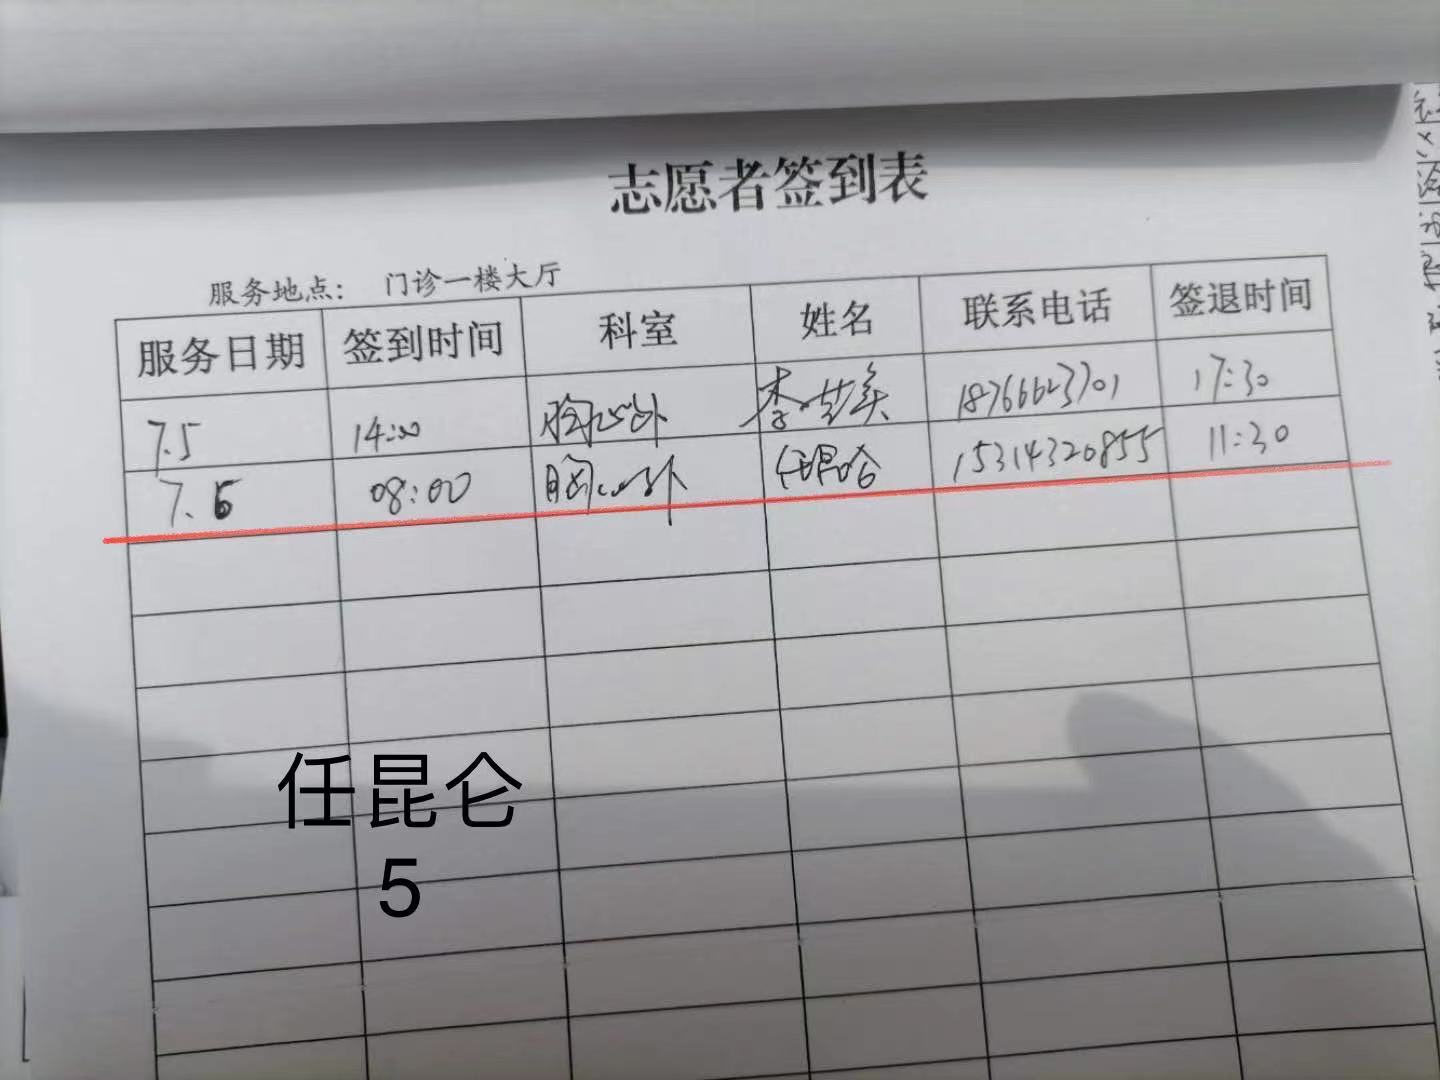 志愿者签到表
服务地点： 门诊一楼大厅
服务日期 签到时间 科室 姓名 联系电话 签退时间
7.5 14:00 胸心外 李 18766623701 17:30
7.6 08:00 胸心外 任昆仑 15314320855 11:30
任昆仑
5